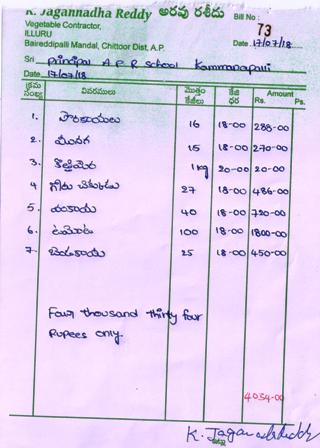 K. Jagannadha Reddy అరవు రశీదు
Vegetable Contractor,
ILLURU
Baireddipalli Mandal, Chittoor Dist, A.P.
Bill No :
73
Date. 17/07/18
Sri Principal A P R School Kammanapalli
Date 17/07/18
క్రమ సంఖ్య వివరములు మొత్తం కేజీలు కేజి ధర Amount Rs. Ps.
1. 16 18-00 288-00
2. మునగ 15 18-00 270-00
3. కొత్తిమిర 1 kg 20-00 20-00
4 గోరు చిక్కుడు 27 18-00 486-00
5. వంకాయ 40 18-00 720-00
6. టమోటా 100 18-00 1800-00
7. బెండకాయ 25 18-00 450-00
Four thousand thirty four
Rupees only.
4034-00
K. Jagannadha Reddy